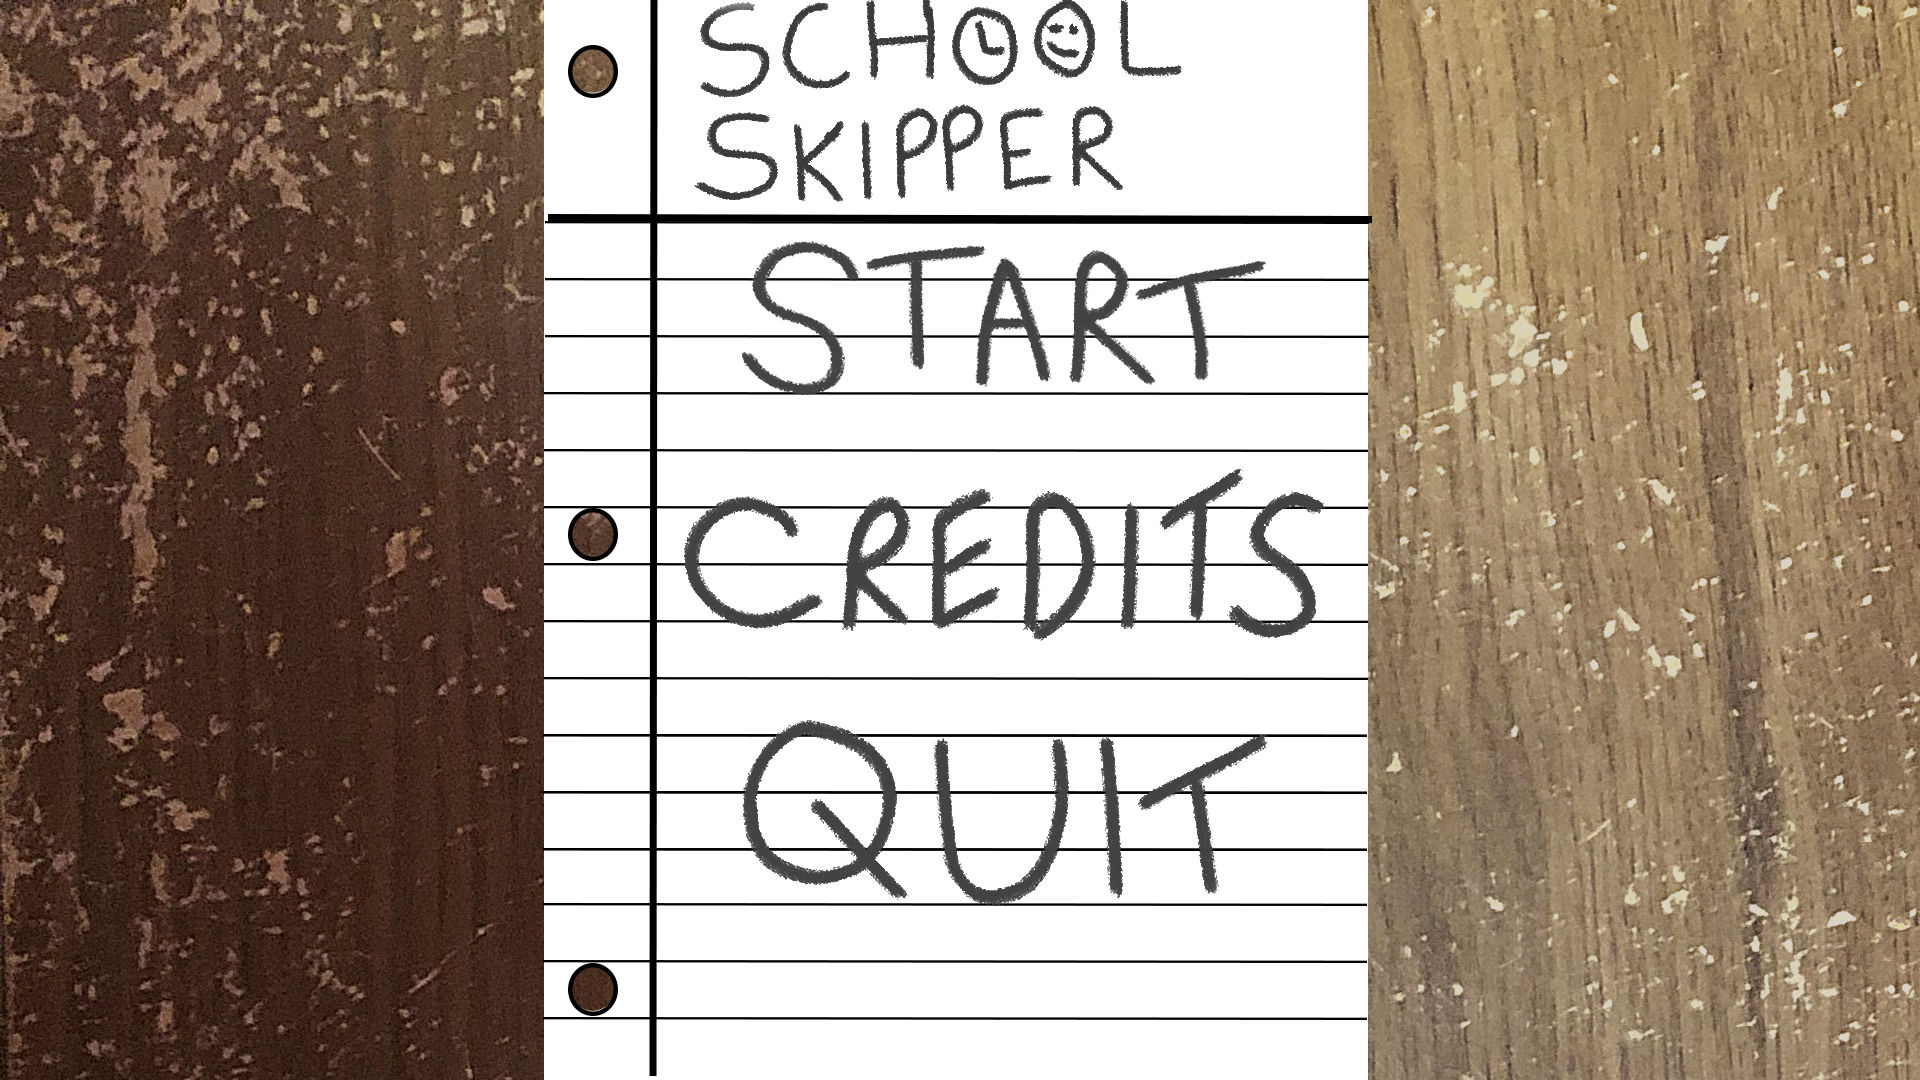 SCHOOL
SKIPPER
START
CREDITS
QUIT